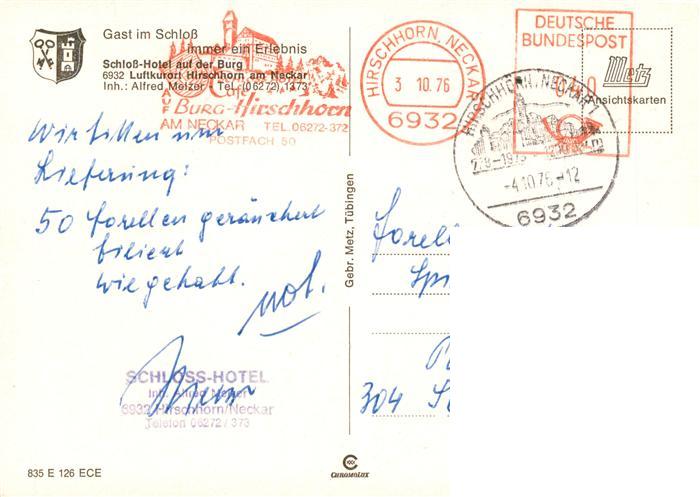 Gast im Schloß
immer ein Erlebnis
Schloß-Hotel auf der Burg
6932 Luftkurort Hirschhorn am Neckar
Inh.: Alfred Metzer · Tel. (06272) 1373
Café
Burg-Hirschhorn
AM NECKAR TEL. 06272-372
POSTFACH 50
HIRSCHHORN, NECKAR
3 10.76
6932
DEUTSCHE
BUNDESPOST
Metz
Ansichtskarten
HIRSCHHORN, NECKAR 1
-4.10.76-12
6932
Wir bitten um
Lieferung:
50 Forellen geräuchert
filiert
wie gehabt.
Gebr. Metz, Tübingen
Forel
304
SCHLOSS-HOTEL
Inh. Alfred
6932 Hirschhorn/Neckar
Telefon 06272 / 373
835 E 126 ECE
CHROMOLUX